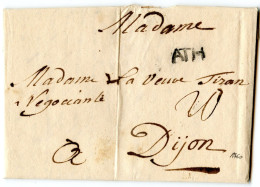 Madame
ATH
Madame La Veuve Firan
Negociante
A
Dijon